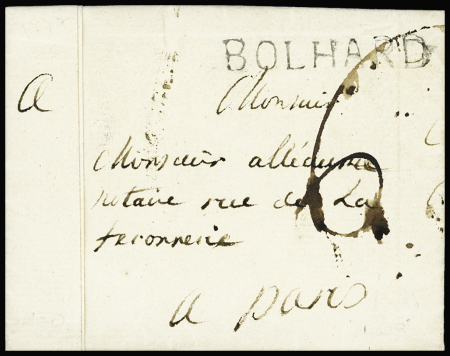 BOLHARD
A Monsieur
Monsieur
notaire rue de La
feronnerie
a paris